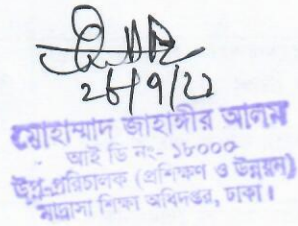 ২৮/৭/২২
মোহাম্মাদ জাহাঙ্গীর আলম
আই ডি নং- ১৮০০০
উপ-পরিচালক (প্রশিক্ষণ ও উন্নয়ন)
মাদ্রাসা শিক্ষা অধিদপ্তর, ঢাকা।